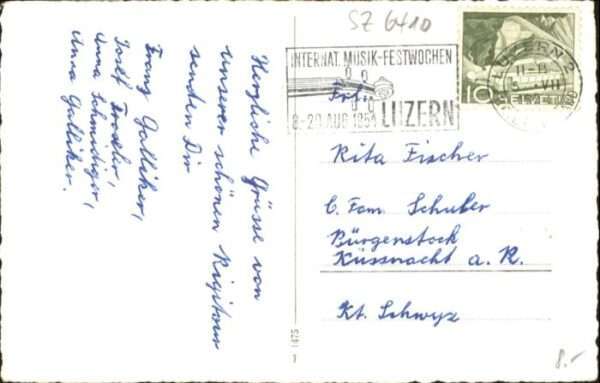 SZ 6410
INTERNAT. MUSIK-FESTWOCHEN
8-29 AUG 1951 LUZERN
LUZERN 2
10
HELVETIA
Herzliche Grüsse von
unserer schönen Rigitour
senden Dir
Franz Galliker,
Josef
Anna Schmidiger,
Anna Galliker.
Frl.
Rita Fischer
b. Fam. Schuler
Bürgenstock
Küssnacht a. R.
Kt. Schwyz
8.-